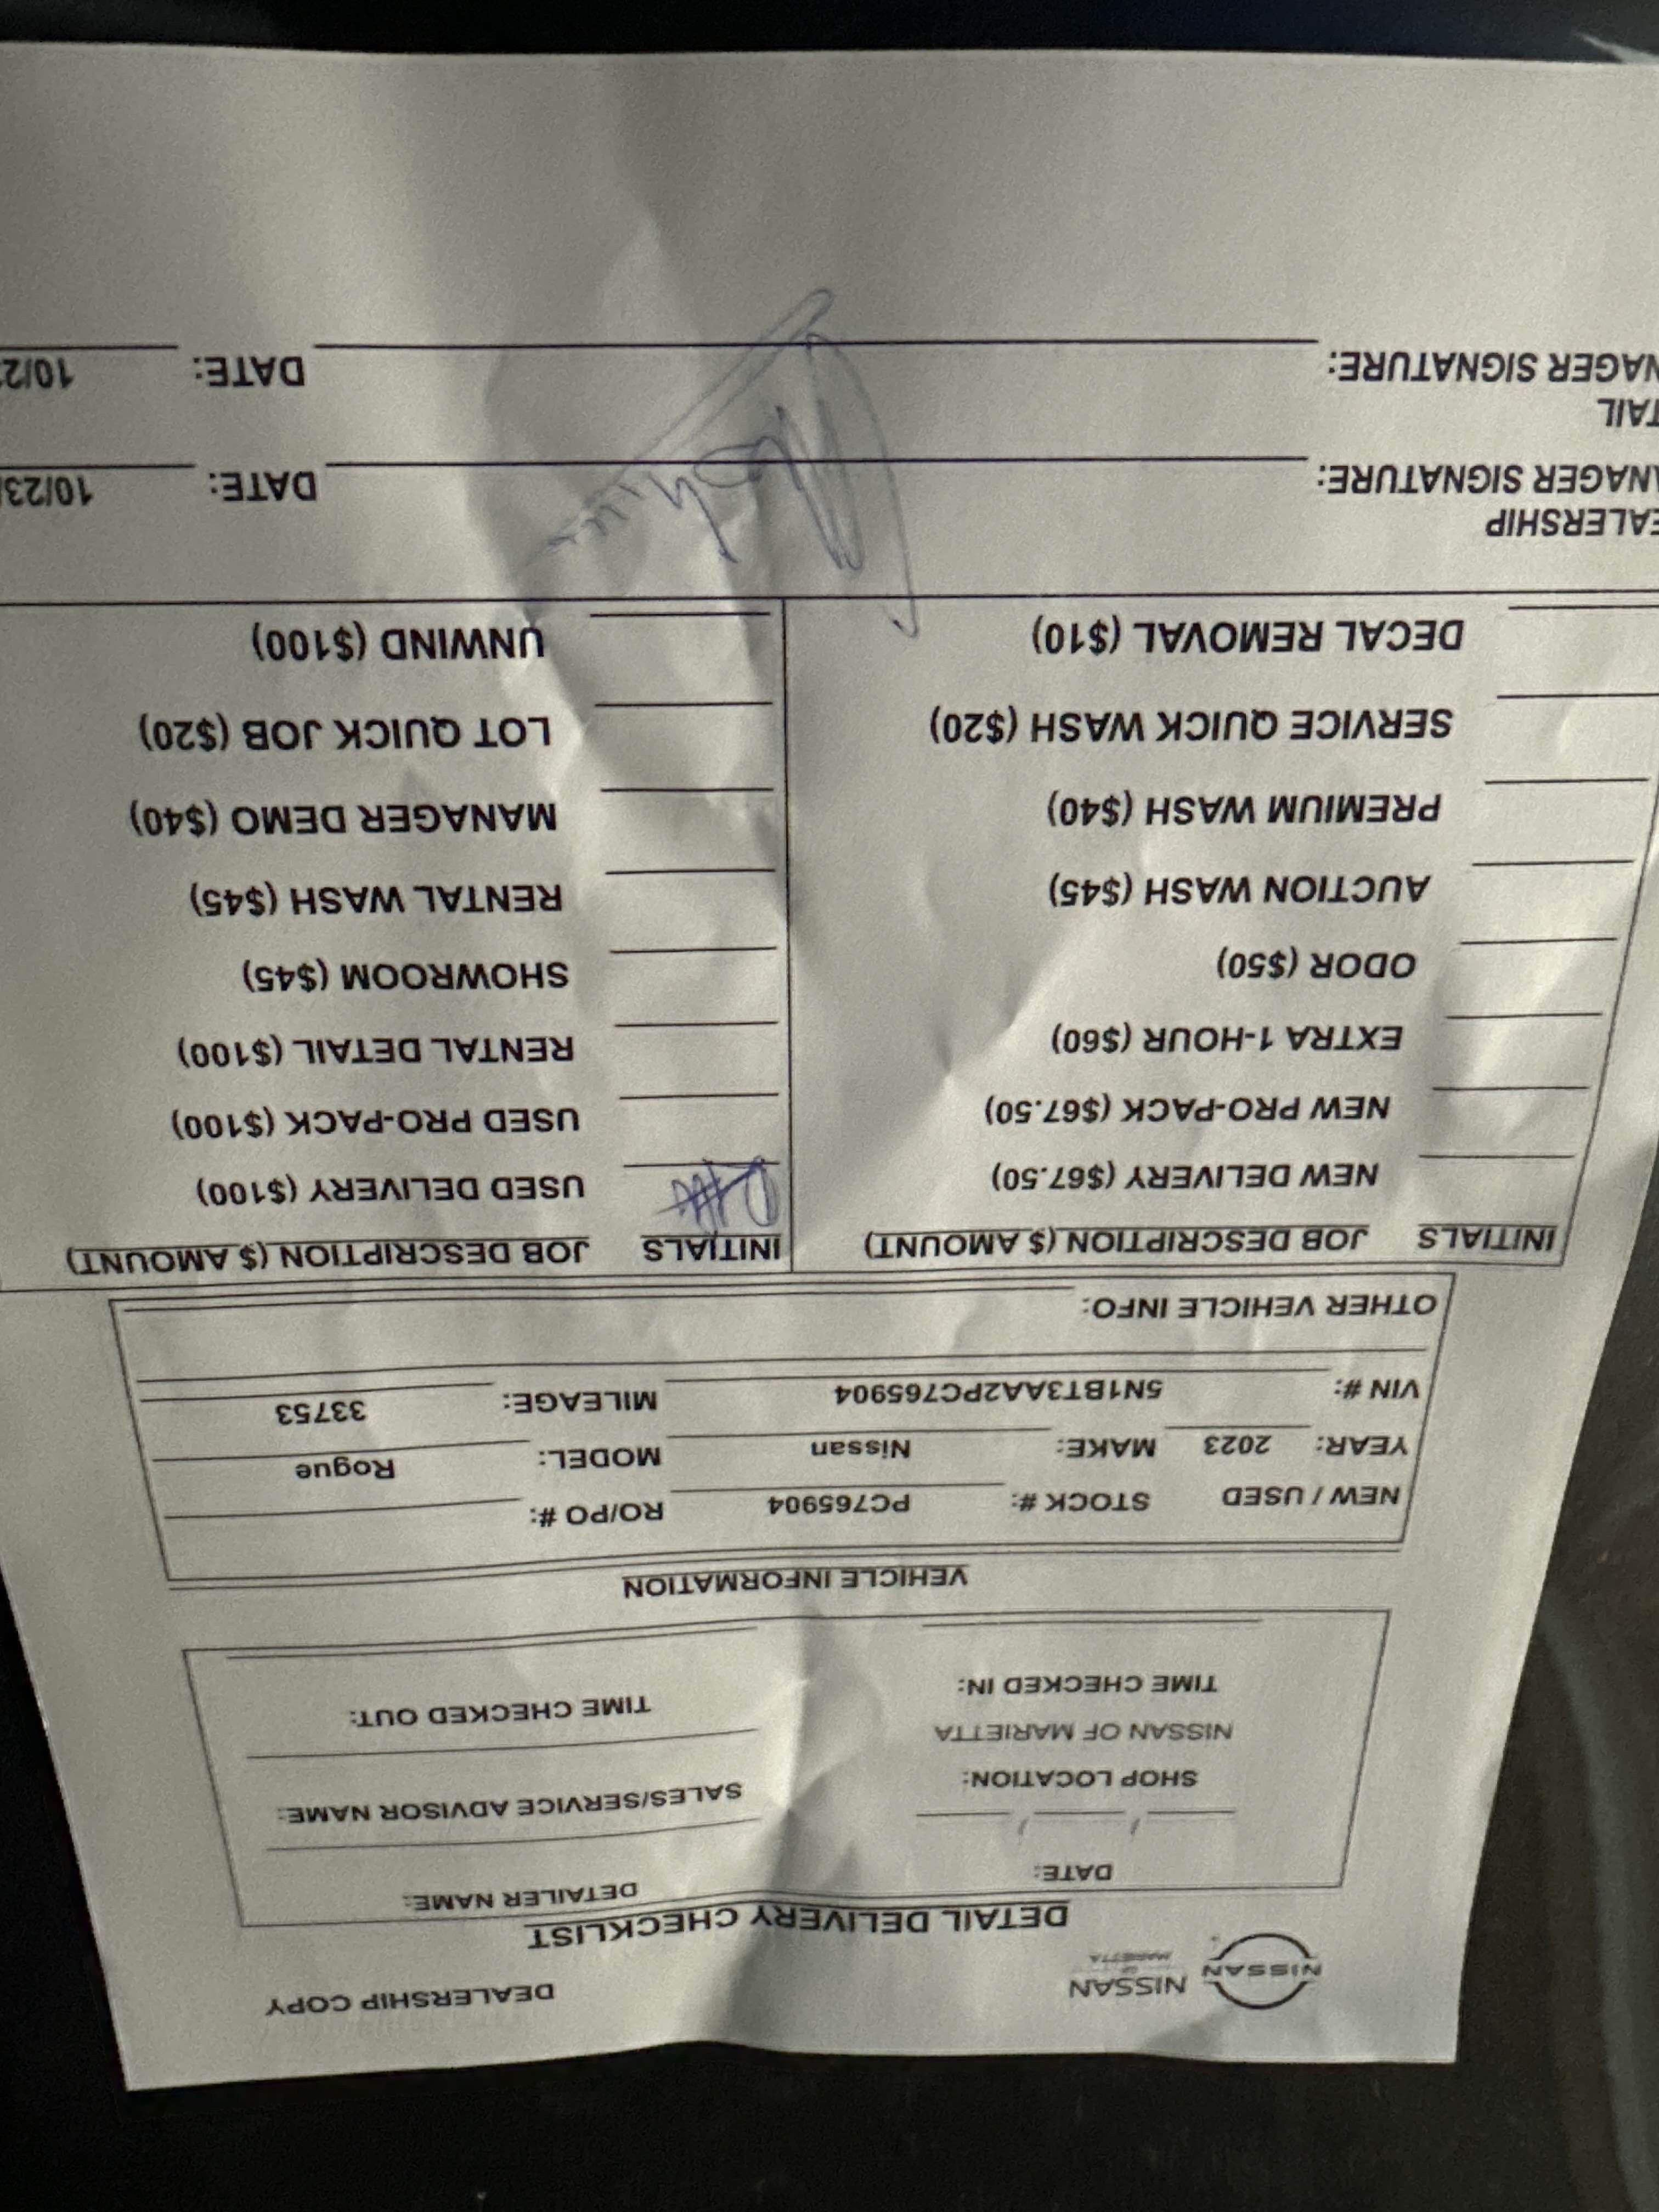 NISSAN NISSAN OF MARIETTA DEALERSHIP COPY
DETAIL DELIVERY CHECKLIST
DATE: / / DETAILER NAME:
SHOP LOCATION: SALES/SERVICE ADVISOR NAME:
NISSAN OF MARIETTA
TIME CHECKED IN: TIME CHECKED OUT:
VEHICLE INFORMATION
NEW / USED STOCK #: PC765904 RO/PO #:
YEAR: 2023 MAKE: Nissan MODEL: Rogue
VIN #: 5N1BT3AA2PC765904 MILEAGE: 33753
OTHER VEHICLE INFO:
INITIALS JOB DESCRIPTION ($ AMOUNT) INITIALS JOB DESCRIPTION ($ AMOUNT)
NEW DELIVERY ($67.50) USED DELIVERY ($100)
NEW PRO-PACK ($67.50) USED PRO-PACK ($100)
EXTRA 1-HOUR ($60) RENTAL DETAIL ($100)
ODOR ($50) SHOWROOM ($45)
AUCTION WASH ($45) RENTAL WASH ($45)
PREMIUM WASH ($40) MANAGER DEMO ($40)
SERVICE QUICK WASH ($20) LOT QUICK JOB ($20)
DECAL REMOVAL ($10) UNWIND ($100)
EALERSHIP
NAGER SIGNATURE: DATE: 10/23/
TAIL
NAGER SIGNATURE: DATE: 10/2